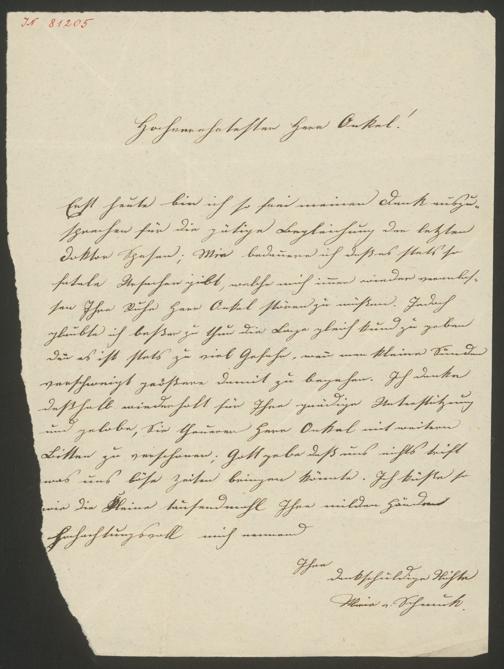 IN 81205
Hochverehrtester Herr Onkel!
Erst heute bin ich so frei meinen Dank auszu-
sprechen für die gütige Begleichung der letzten
Doktor Spesen, Wie bedauere ich daß es stets so
fatale Ursachen gibt, welche mich immer wieder veranlas-
sen Ihre Ruhe Herr Onkel stören zu müßen. Jedoch
glaubte ich beßer zu thun die Lage gleich kund zu geben
den es ist stets zu viel Gefahr, wen man kleine Sünden
verschweigt größere damit zu begehen. Ich danke
deshalb wiederholt für Ihre gnädige Unterstützung
und gelobe, Sie theuerer Herr Onkel mit weitern
Bitten zu verschonen. Gott gebe daß uns nichts trift
was uns böse Zeiten bringen könnte. Ich küße so
wie die Kleine tausendmahl Ihre milden Hände
Hochachtungsvoll mich nennend
Ihre
dankschuldige Nichte
Marie v. Schmuk.